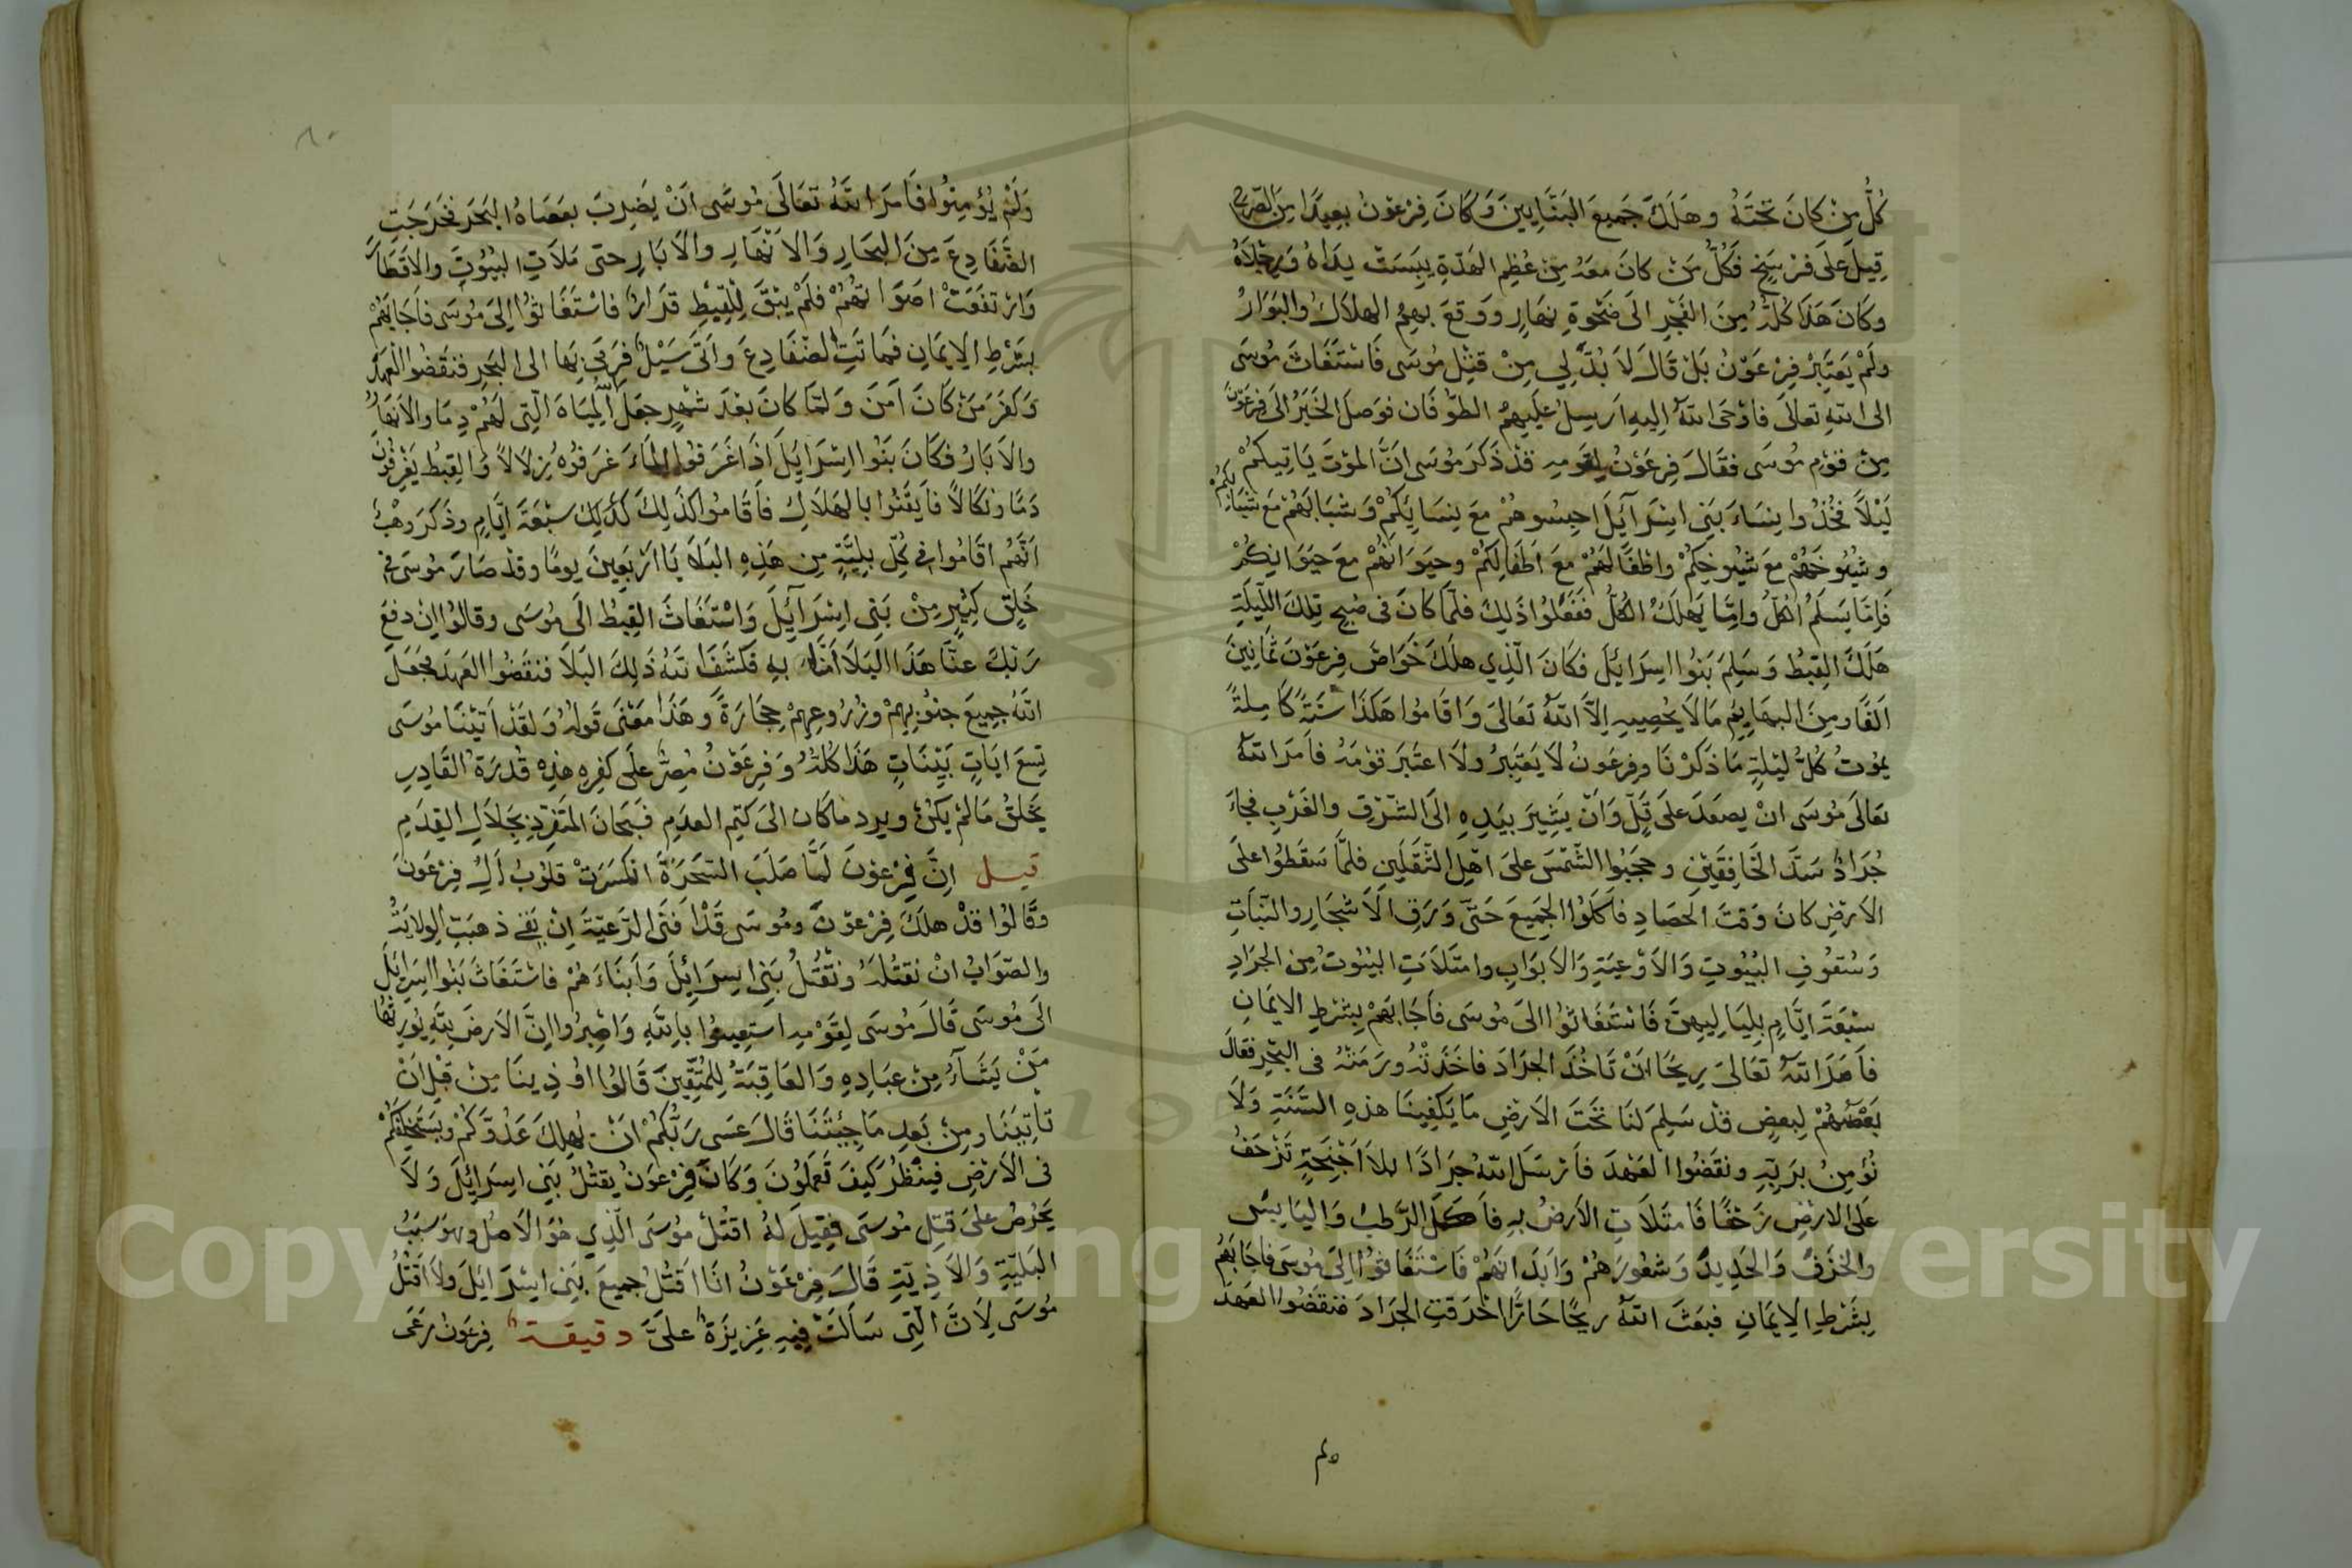 كُلُّ مِنْ كانَ تَحْتَهُ وهَلَكَ جَميعَ البَنَّايِينَ وَكَانَ فِرْعَوْنُ بعِيدًا مِنَ الصَّرحِ
قِيلَ عَلَى فرْسَخٍ فكُلُّ مَنْ كانَ معَهُ مِنْ عُظمِ الهَدّةِ يبِسَتْ يدَاهُ وَرِجْلَاهُ
وكَانَ هَذَا كُلُّهُ مِنَ الفَجْرِ الىَ ضَحْوَةِ نهَارٍ ووَقعَ بهِمُ الهلَاكُ والبَوَارُ
ولَمْ يَعتَبِرْ فِرْعَوْنُ بَلْ قَالَ لاَ بُدَّ لِي مِنْ قتْلِ مُوسَى فَاسْتَغَاثَ مُوسَى
الى اللهِ تعالَى فاوْحَى اللهُ اِليهِ ارسِلُ علَيهِمُ الطوفَان فوَصلَ الخَبَرُ الىَ فِرعَوْنَ
مِنْ قوْمِ مُوسَى فقَالَ فِرعَوْنُ لِقومِهِ قدْ ذَكَرَ مُوسَى انَّ الموْتَ يَاتِيكمُ
لَيْلاً فَخُذُوا نِسَاءَ بَنِى اسْرَآئِلَ احبِسُوهُمْ مَعَ نِسَايَكُمْ وَشبَابَهُمْ مَعَ شَبَابِكُمْ
وشيُوخَهُمْ مَعَ شيُوخِكُمْ واطْفَالَهُمْ مَعَ اَطفَالِكُمْ وحيَوَانَهُمْ مَعَ حَيَوَانِكُمْ
فَإمّا يَسلَمُ الكُلُّ وامّا يَهلكُ الكُلُّ ففَعَلُوا ذَلِكَ فلَمّا كانَ فى صُبحِ تِلكَ اللّيلَةِ
هَلَكَ القِبطُ وَسَلِمَ بَنُوا اسِرَائِلَ فكانَ الّذِي هلَكَ خَوَاصَّ فِرعَوْنَ ثَمانِينَ
الفًا ومِنَ البهَايِمِ مَا لاَ يُحصِيهِ اِلاَّ اللهُ تعَالىَ وَاقَامُوا هَكَذَا سَنَةً كَامِلةً
يمُوتُ كُلَّ ليْلَةٍ مَا ذَكَرْنَا وفِرعَونُ لاَ يَعتَبِرُ ولاَ اعتَبَرَ قوْمَهُ فأَمَرَ اللهُ
تعَالَى مُوسَى انْ يصعَدَ علَى تَلٍّ وَانْ يَشِيرَ بيَدِهِ الىَ الشّرْقِ والغَرْبِ فجَاءَ
جُرَادٌ سَدَّ الخَافِقَيْنِ وحجَبُوا الشّمْسَ علىَ اهْلِ الثّقَلَينِ فلَمَّا سَقطُوا علَى
الاَرْضِ كانَ وَقتَ الحَصَادِ فاَكَلُوا الجَمِيعَ حَتَّى وَرَق الاَشجَارِ والنّبَاتِ
وَسُقُوفِ البُيُوتِ وَالاَوْعيَةِ وَالاَبوَابِ وامتَلاَتِ البيُوتُ مِن الجَرَادِ
سبْعَةَ ايَّامٍ بِليَالِيهِنَّ فَاسْتغَاثوُا الىَ مُوسَى فأَجَابَهُمْ بِشَرْطِ الاِيمَانِ
فأَمَرَ اللهُ تعَالىَ رِيحًا انْ تَاخُذَ الجرَادَ فاخَذَتْهُ ورَمَتْهُ فى البَحْرِ فقَالَ
بَعْضُهُمْ لِبعضٍ قدْ سَلِمَ لَنَا تَحْتَ الاَرْضِ مَا يَكفِينَا هذهِ السّنَةِ وَلاَ
نُؤمِنُ برَبِّهِ ونقَضُوا العَهْدَ فأَرْسَلَ اللهُ جرَادًا بلاَ اَجْنِحَةٍ تَزْحَفُ
علَى الارْضِ زَحْفًا فَامتَلاَتِ الاَرضُ بهِ فأَكَلَ الرّطبَ وَاليَابِسَ
والخَزَفَ وَالحَدِيدَ وَشعُورَهُمْ وَابَدَانَهُمْ فَاسْتَغَاثوُا إِلَى مُوسَى فاجَابَهُم
بِشَرْطِ الاِيمَانِ فبَعَثَ اللهُ ريحًا حَارًّا اخْرَقتِ الجَرَادَ فنقَضُوا العَهدَ
وَلَمْ يُؤمِنُوا فَأمَرَ اللهُ تعَالَى مُوسَى اَنْ يَضرِبَ بعَصَاهُ البَحَرَ فخَرَجَتِ
الضَّفَادِعَ مِنَ البحَارِ وَالاَنْهَارِ والاَبَارِ حتّى مَلَاتِ البيُوتِ والاَقطَارَ
وَارْتفَعَتْ اصَوَاتهُمْ فلَمْ يَبْقَ لِلقِبطِ قرَارًا فاسْتَغَاثوُا اِلَى مُوسَى فأَجَابَهُمْ
بشَرْطِ الاِيمَانِ فمَاتَتِ الضّفَادِعَ واَتَى سَيْلٌ فرَمَى بِهَا الى البَحرِ فنقَضُوا العَهدَ
وَكفَرَ مَنْ كَانَ اَمَنَ وَلمَّا كانَ بعْدَ شهْرٍ جعَلَ اللهُ المِيَاهَ الّتِى لَهُمْ دِمَا والاَنهَارُ
والاَبَارُ فكَانَ بَنُوا اسْرَايَلَ اذَا غَرَفوُا المَاءَ غَرَفوُهُ زِلاَلاً وَالقِبطُ يَغْرِفوُنَ
دَمًا ونكَالاً فاَيقَنُوا بالهَلاَكِ فأَقَامُوا كَذَلِكَ كذَلِكَ سبْعَةَ ايَّامٍ وذَكَرَ وهْبُ
اَنَّهُم اقَامُوا فى كلِّ بلِيَّةٍ مِن هَذِهِ البَلاَيَا اَرْبَعِينَ يومًا وقدْ صَارَ مُوسَى فى
خَلِقٍ كثِيرٍ مِنْ بَنِى اسْرَآئِلَ وَاسْتَغَاثَ القِبطُ الىَ مُوسَى وقالُوا اِنْ دفعَ
رَبّكَ عنَّا هَذَا البَلاَ اَمَنّا بهِ فكشَفَ اللهُ ذَلِكَ البَلاَ فنقَضُوا العَهدَ فجَعَلَ
اللهُ جمِيعَ حبُوبهِمْ وزرُوعِهِمْ حِجَارَةً وهَذَا مَعْنَى قَولُهُ وَلقدْ اَتيْنَا مُوسَى
تِسعَ ايَاتٍ بَيِّنَاتٍ هَذَا كُلّهُ وَفِرعَوْنُ مُصِرٌّ علَى كفرِهِ هذِهِ قدْرَةُ القَادِرِ
يَخْلُقُ مَا لمْ يَكُنْ ويرد ما كان الىَ كتمِ العدَمِ فسُبحَانَ المتَفَرِّدِ بجَلاَلِ القِدَمِ
قيل اِنَّ فِرْعَوْنَ لَمَّا صَلَبَ السّحَرَةَ انكَسَرَتْ قلُوبُ آلِ فِرْعَوْنَ
وقَالوُا قدْ هلَكَ فِرْعَوْنَ ومُوسَى قدْ اَفنَى الرّعيّةَ اِنْ بَقىَ ذهبَتِ الوِلايَةُ
والصّوَابُ انْ نقتُلهُ ونقْتُلُ بَنِى اسِرَائِلَ وَاَبنَاءَهُمْ فاسْتَغَاثَ بَنوُا اسِرَائِلَ
الَى مُوسَى قَالَ مُوسَى لِقَوْمِهِ استَعِينُوا بِاللهِ وَاصْبِرُوا اِنَّ الاَرضَ للهِ يُورِثُهَا
مَنْ يَشَآءُ مِنْ عبَادِهِ وَالعَاقِبَةُ لِلمُتّقِينَ قَالُوا اوُذِينَا مِنْ قَبْلِ اَنْ
تأتِيَنَا ومِنْ بَعدِ مَا جِئتَنَا قَالَ عسَى رَبُّكُمْ انْ يُهلِكَ عَدُوَّكُمْ وَيَسْتَخلِفَكُمْ
فى الاَرْضِ فيَنْظُرَ كيفَ تَعْمَلُونَ وَكَانَ فِرْعَونُ يقتُلُ بَنِى اسِرَائِلَ وَلاَ
يَحْرُصُ علىَ قتْلِ مُوسَى فقِيلَ لهُ اقتُلْ مُوسَى الّذِي هُوَ الاَصلُ وهوَ سَبَبُ
البَلِيّةِ وَالاَذِيّةِ قَالَ فِرْعَوْنُ انَا اقتُلُ جميعَ بَنِى اسِرَايَلَ ولاَ اقْتُلُ
مُوسَى لِاَنَّ الّتِى سَاَلَتْ فِيهِ عَزِيزَةٌ علَىَّ دقيقة فِرعَونُ رَعَى